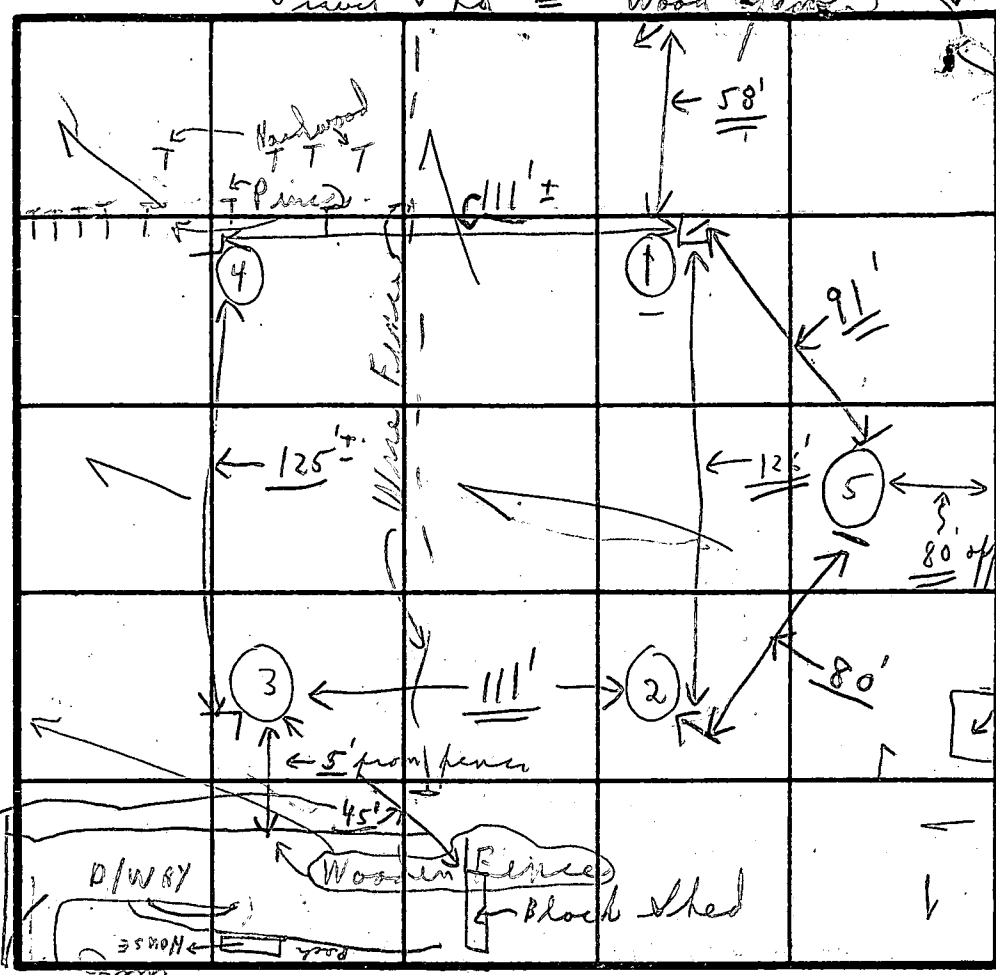 Wood
58'
Hardwood
T T T T
Pines
T T T T T T
111' ±
4
1
91'
Wire Fence
125' ±
125'
5
80' off
3
111'
2
80'
5' from fence
45'
Wooden Fence
D/WAY
Block Shed
House
Porch